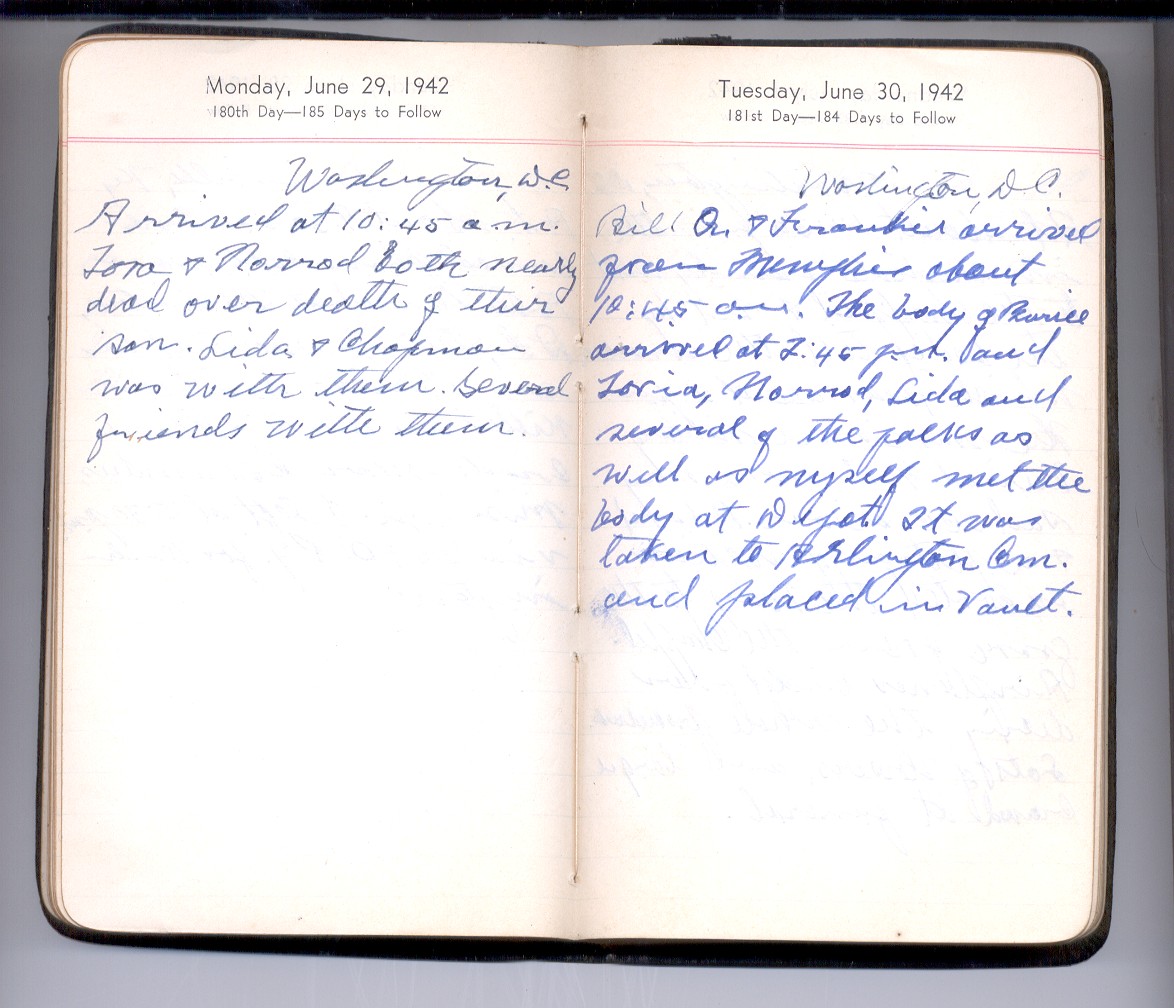 Monday, June 29, 1942
180th Day—185 Days to Follow
Washington, D.C.
Arrived at 10:45 a.m.
& Norrod both nearly
dead over death of their
son. Lida & Chapman
was with them. Several
friends with them.
Tuesday, June 30, 1942
181st Day—184 Days to Follow
Washington, D.C.
Bill & Frankie arrived
from Memphis about
10:45 a.m. The body of
arrived at 2:45 p.m. and
Norrod, Lida and
several of the folks as
well as myself met the
body at Depot. It was
taken to Arlington Cem.
and placed in Vault.